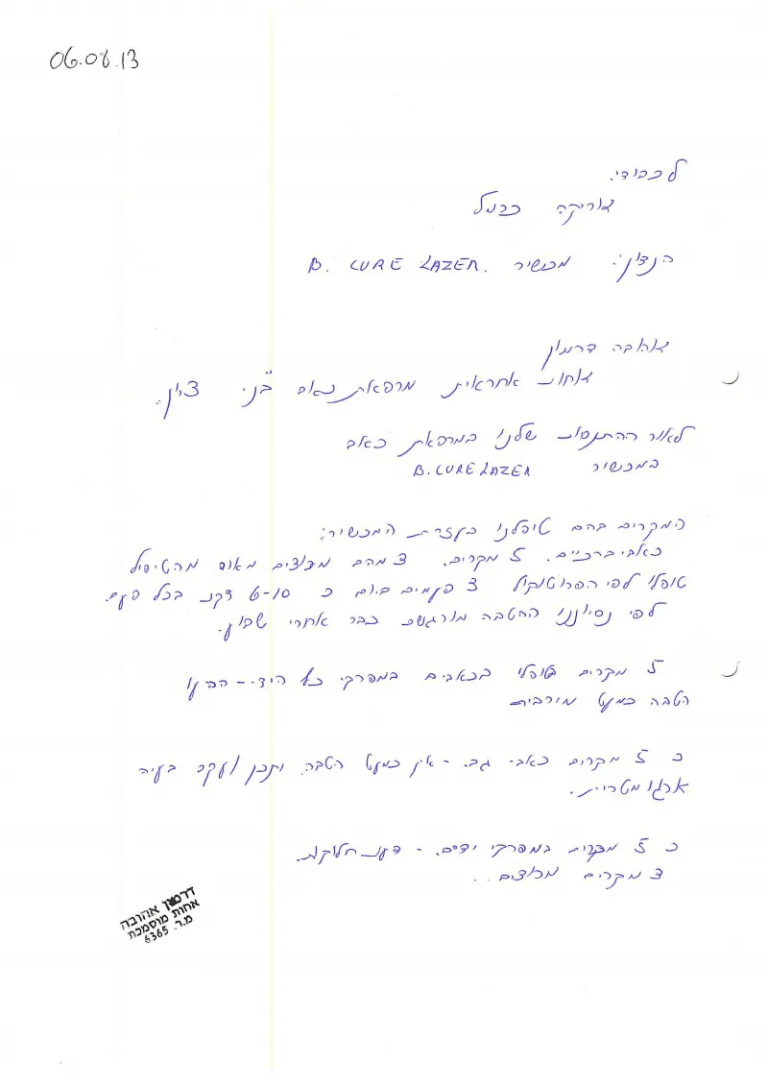 06.08.13
לכבודי.
אוריקה כרמל
הנדון: מכשיר B. CURE LAZER.
אהובה דרמון
אחות אחראית מרפאת כאב "בני ציון.
לאור ההתנסות שלנו במרפאת כאב
במכשיר B.CURE LAZER
המקרים בהם טיפלנו בעזרת המכשיר:
כאבי ברכיים. 5 מקרים. 3 מהם מרוצים מאוד מהטיפול
טופלו לפי הפרוטוקול 3 פעמים ביום כ 6-10 דקו בכל פעם.
לפי נסיוננו ההטבה מורגשת כבר אחרי שבוע.
5 מקרים טופלו בכאבים במפרקי כף היד - הביעו
הטבה כמעט מירבית
כ 5 מקרים כאבי גב. - אין כמעט הטבה. יתכן ועקב בעיה
כ 5 מקרים במפרקי ידיים. - דעות חלוקות.
3 מקרים מרוצים..
דרמון אהובה
אחות מוסמכת
מ.ר. 6365